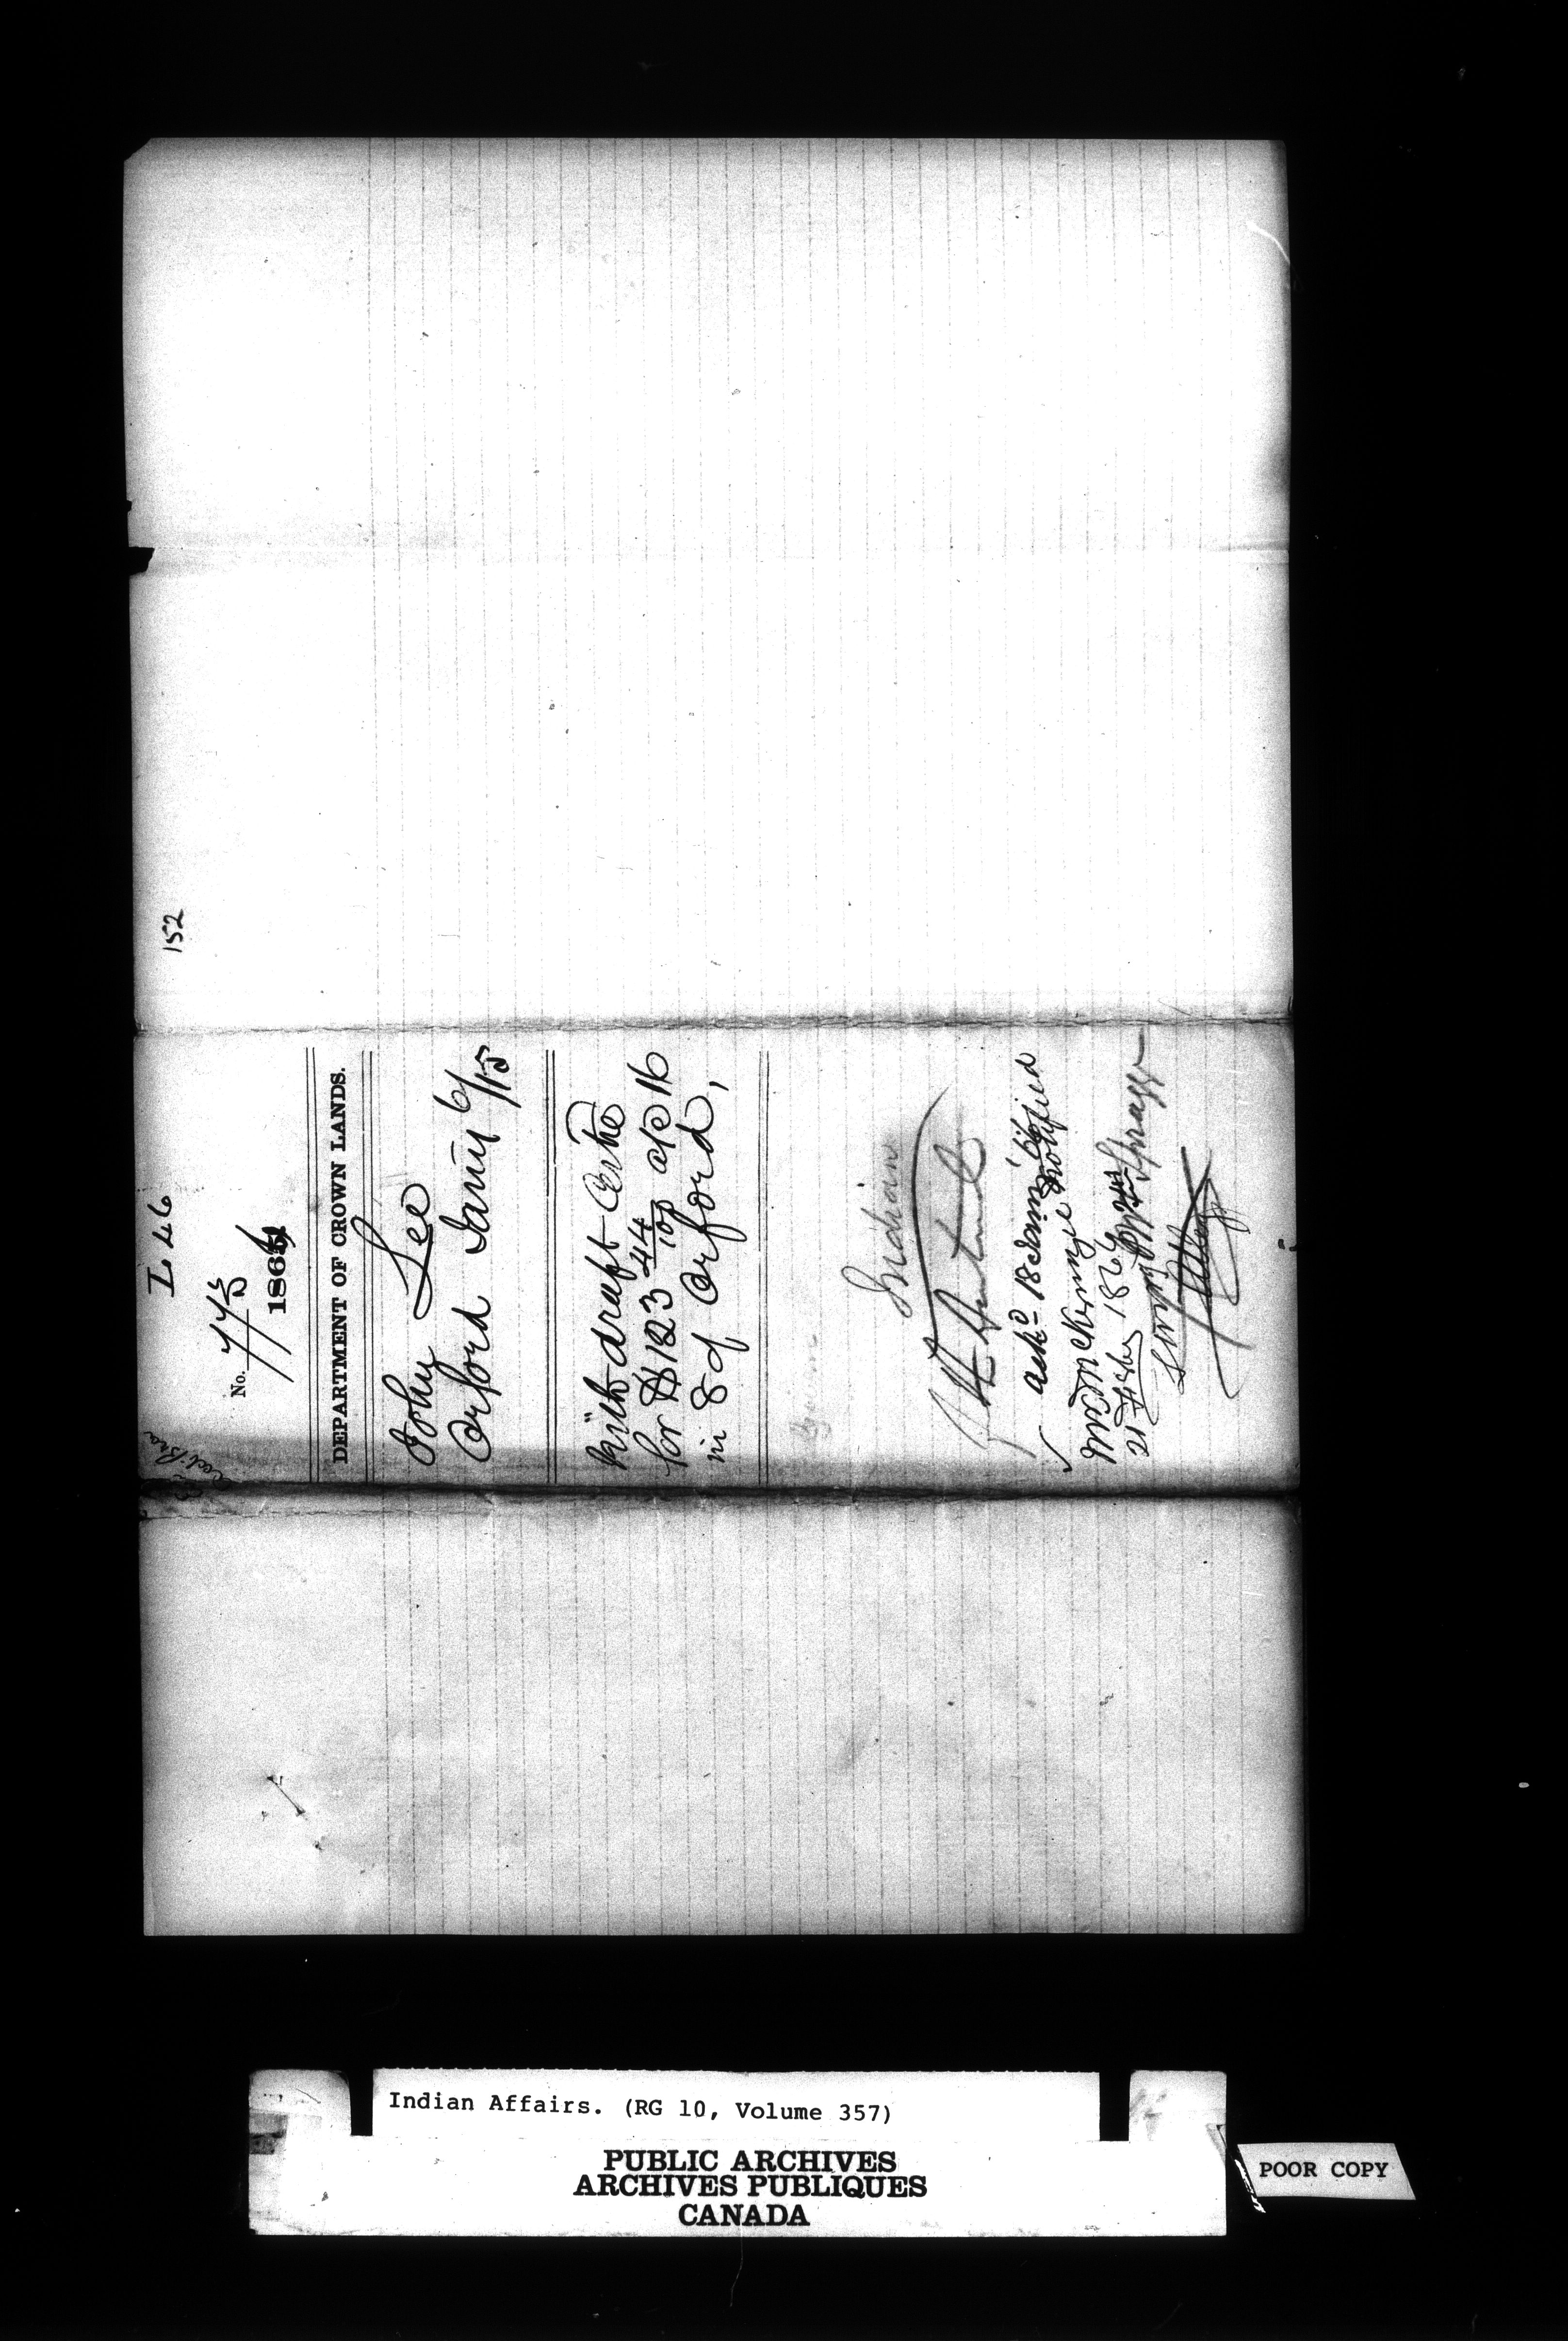 152
L 46
No. 775
1866
DEPARTMENT OF CROWN LANDS.
John Lee
Orford Jany 6/15
With draft Certe
for $123 44/100 a/c 16
in 8 of Orford,
Indian
Ackd 18 Jany '66
Mr McKenzie notified
21 Feby 1867
Spragge
Indian Affairs. (RG 10, Volume 357)
PUBLIC ARCHIVES
ARCHIVES PUBLIQUES
CANADA
POOR COPY